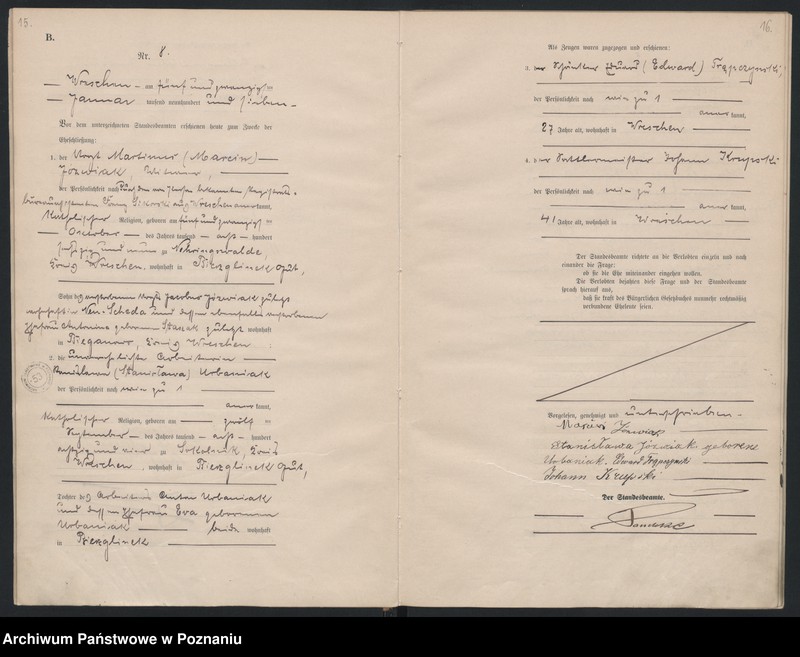 15.
B.
Nr. 8.
Wreschen am fünf und zwanzigsten
Januar tausend neunhundert und sieben
Vor dem unterzeichneten Standesbeamten erschienen heute zum Zweck der
Eheschließung:
1. der Vogt Martinus (Marcin)
Jozwiak, Witwer,
der Persönlichkeit nach
aus Wreschen anerkannt,
katholischer Religion, geboren am fünf und zwanzigsten
Oktober des Jahres tausend acht hundert
fünfzig und neun zu Nekringswalde,
Kreis Wreschen, wohnhaft in Bierzglinek Gut,
Sohn des verstorbenen Vogts Jacobus Jozwiak zuletzt
wohnhaft in Neu-Scheda und dessen ebenfalls verstorbenen
Ehefrau Antonina geborenen Stasak zuletzt wohnhaft
in Bieganowo, Kreis Wreschen
2. die unverehelichte Arbeiterin
Stanislawa (Stanisława) Urbaniak
der Persönlichkeit nach wie zu 1
anerkannt,
katholischer Religion, geboren am zwölften
September des Jahres tausend acht hundert
achtzig und vier zu Sokolnik, Kreis
Wreschen, wohnhaft in Bierzglinek Gut,
Tochter des Arbeiters Anton Urbaniak
und dessen Ehefrau Eva geborenen
Urbaniak beide wohnhaft
in Bierzglinek
16.
Als Zeugen waren zugezogen und erschienen:
3. der Eduard (Edward) Trąpczyński,
der Persönlichkeit nach wie zu 1
anerkannt,
27 Jahre alt, wohnhaft in Wreschen
4. der Sattlermeister Johann Krupski
der Persönlichkeit nach wie zu 1
anerkannt,
41 Jahre alt, wohnhaft in Wreschen
Der Standesbeamte richtete an die Verlobten einzeln und nach
einander die Frage:
ob sie die Ehe miteinander eingehen wollen.
Die Verlobten bejahten diese Frage und der Standesbeamte
sprach hierauf aus,
daß sie kraft des Bürgerlichen Gesetzbuches nunmehr rechtmäßig
verbundene Eheleute seien.
Vorgelesen, genehmigt und unterschrieben
Marcin Jozwiak
Stanisława Józwiak geborene
Urbaniak. Edward Trąpczyński
Johann Krupski
Der Standesbeamte.
Archiwum Państwowe w Poznaniu